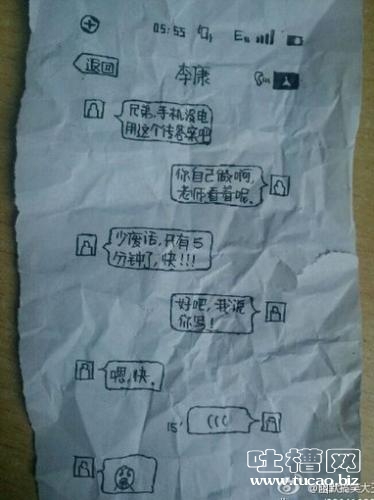 05:55 E
返回
李康
兄弟,手机没电
用这个传答案吧
你自己做啊,
老师看着呢。
少废话,只有5
分钟了,快!!!
好吧,我说
你写!
嗯,快.
15'
吐槽网
www.tucao.biz
@幽默搞笑大王